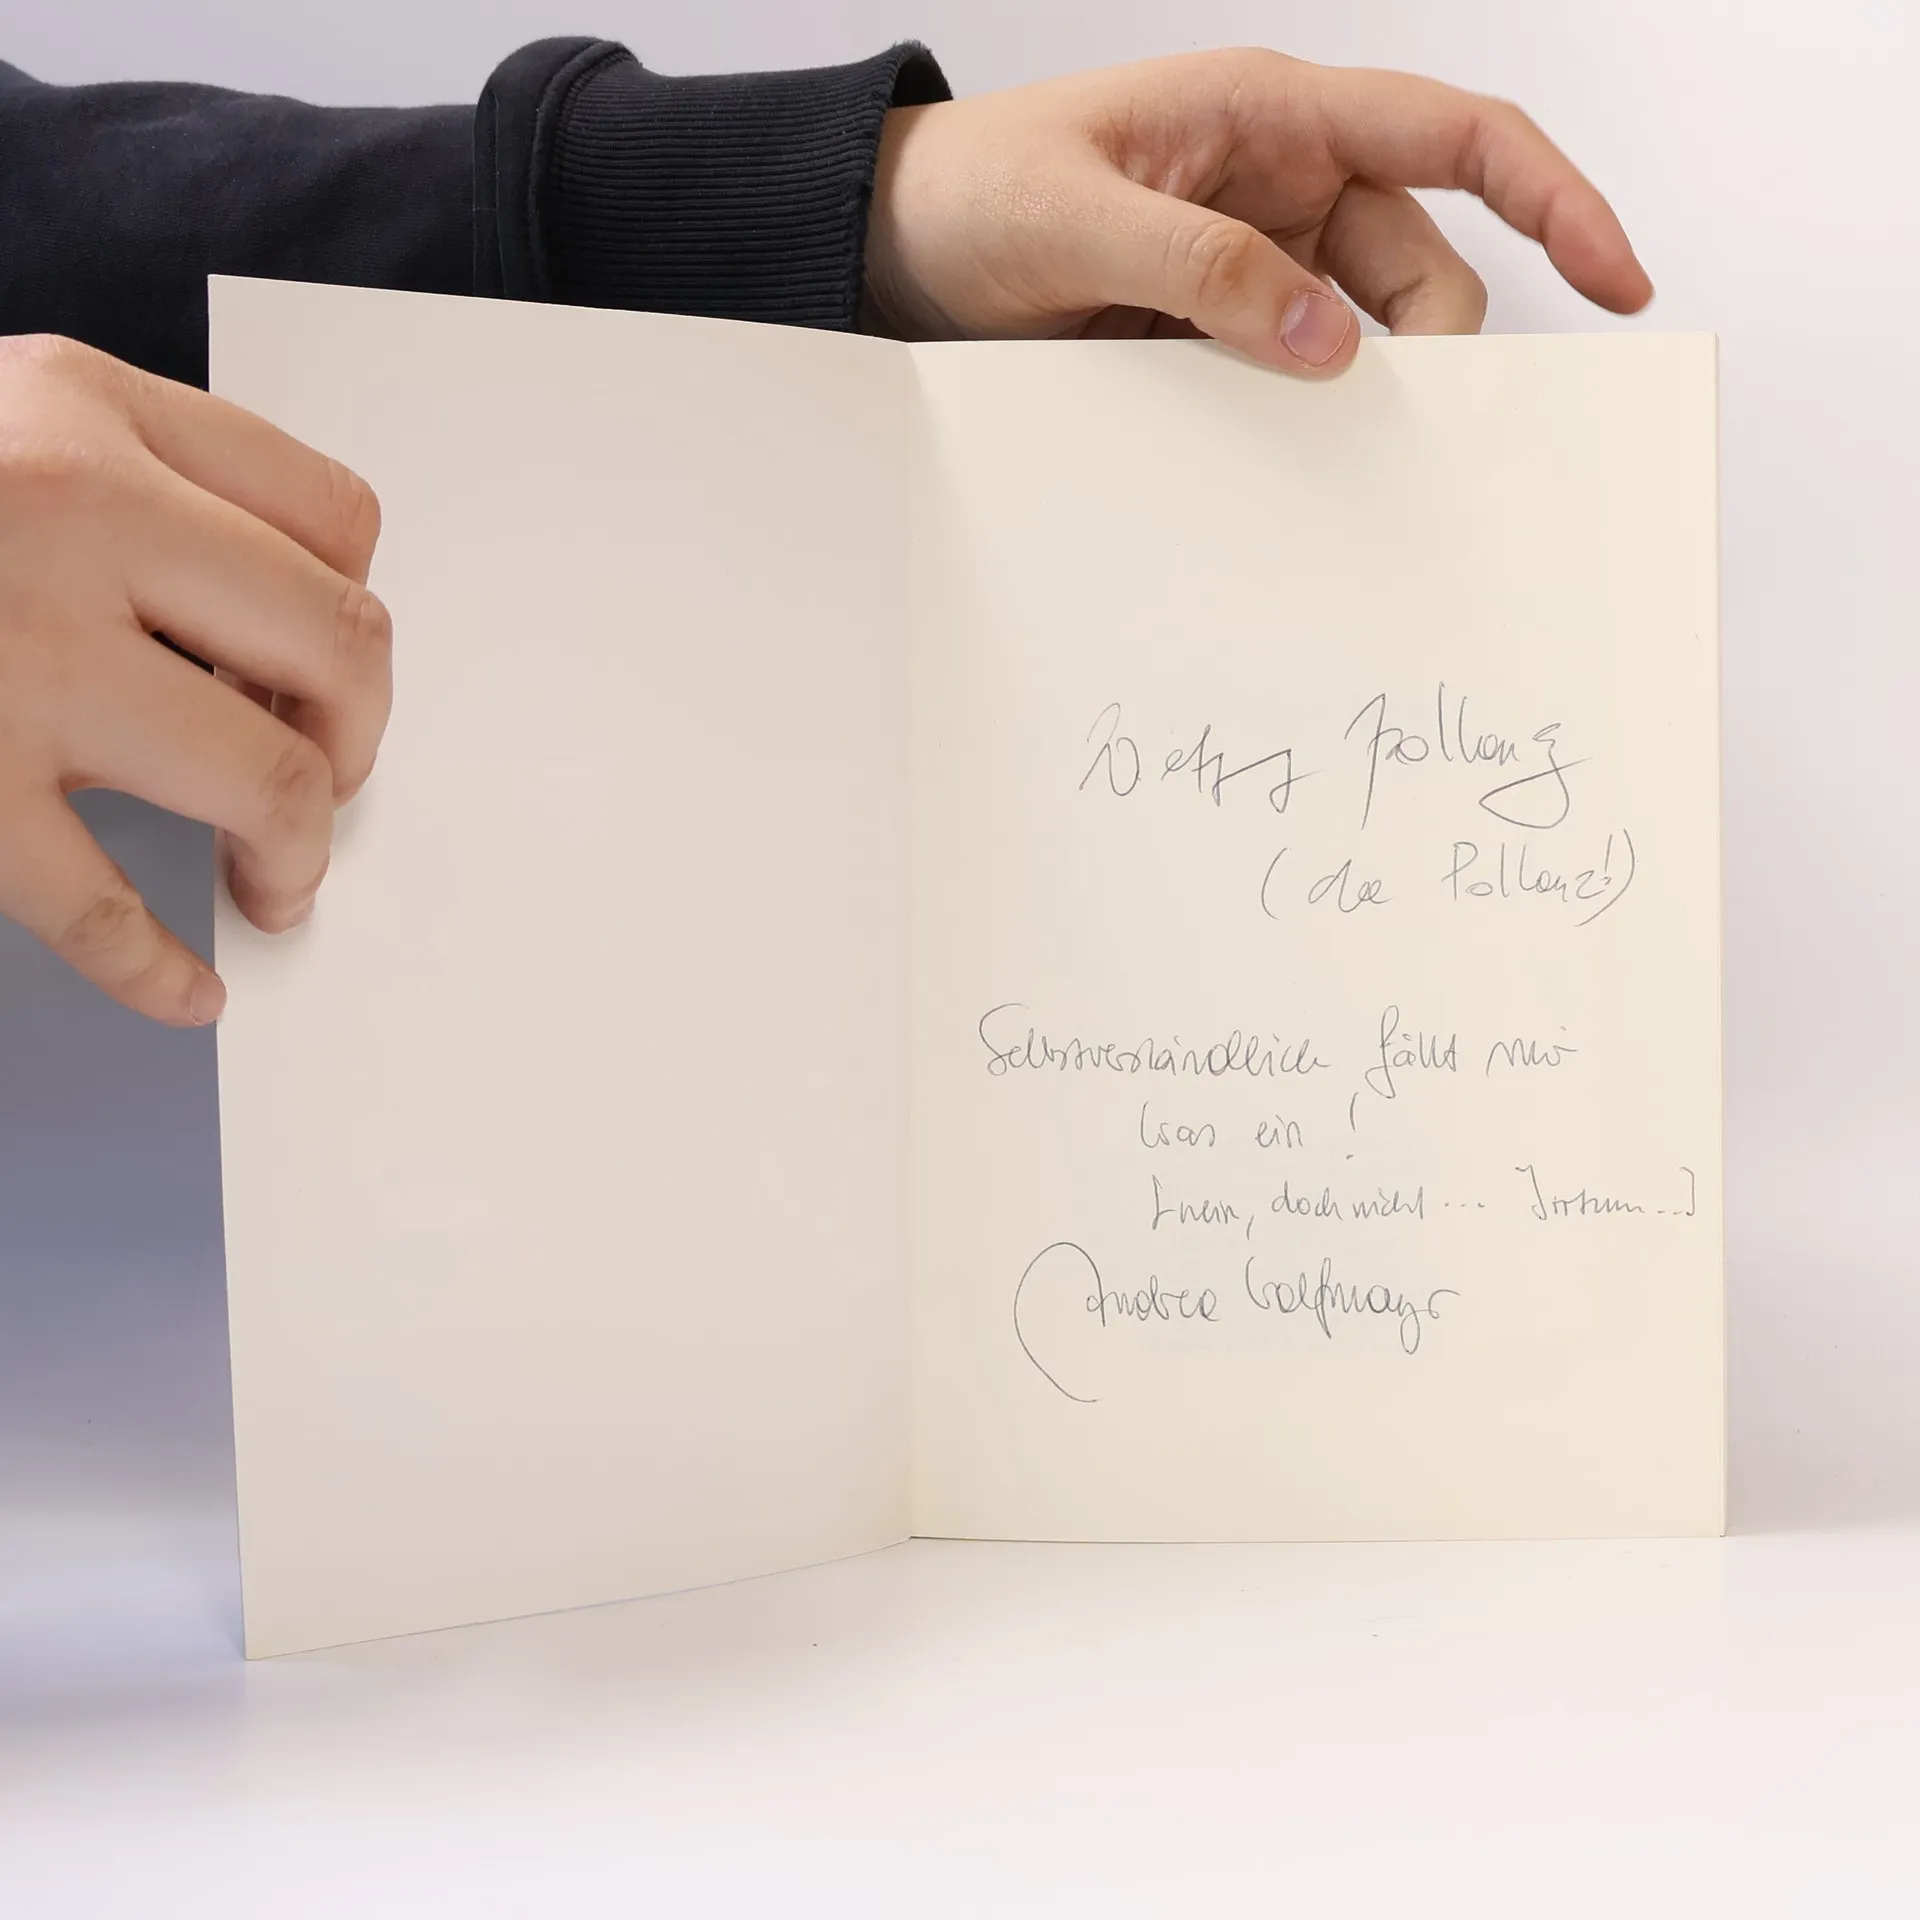 Pollanz
(die Pollanz!)
Selbstverständlich fällt mir
was ein!
[nein, doch nicht... Irrtum...]
Andrea Wolfmayr